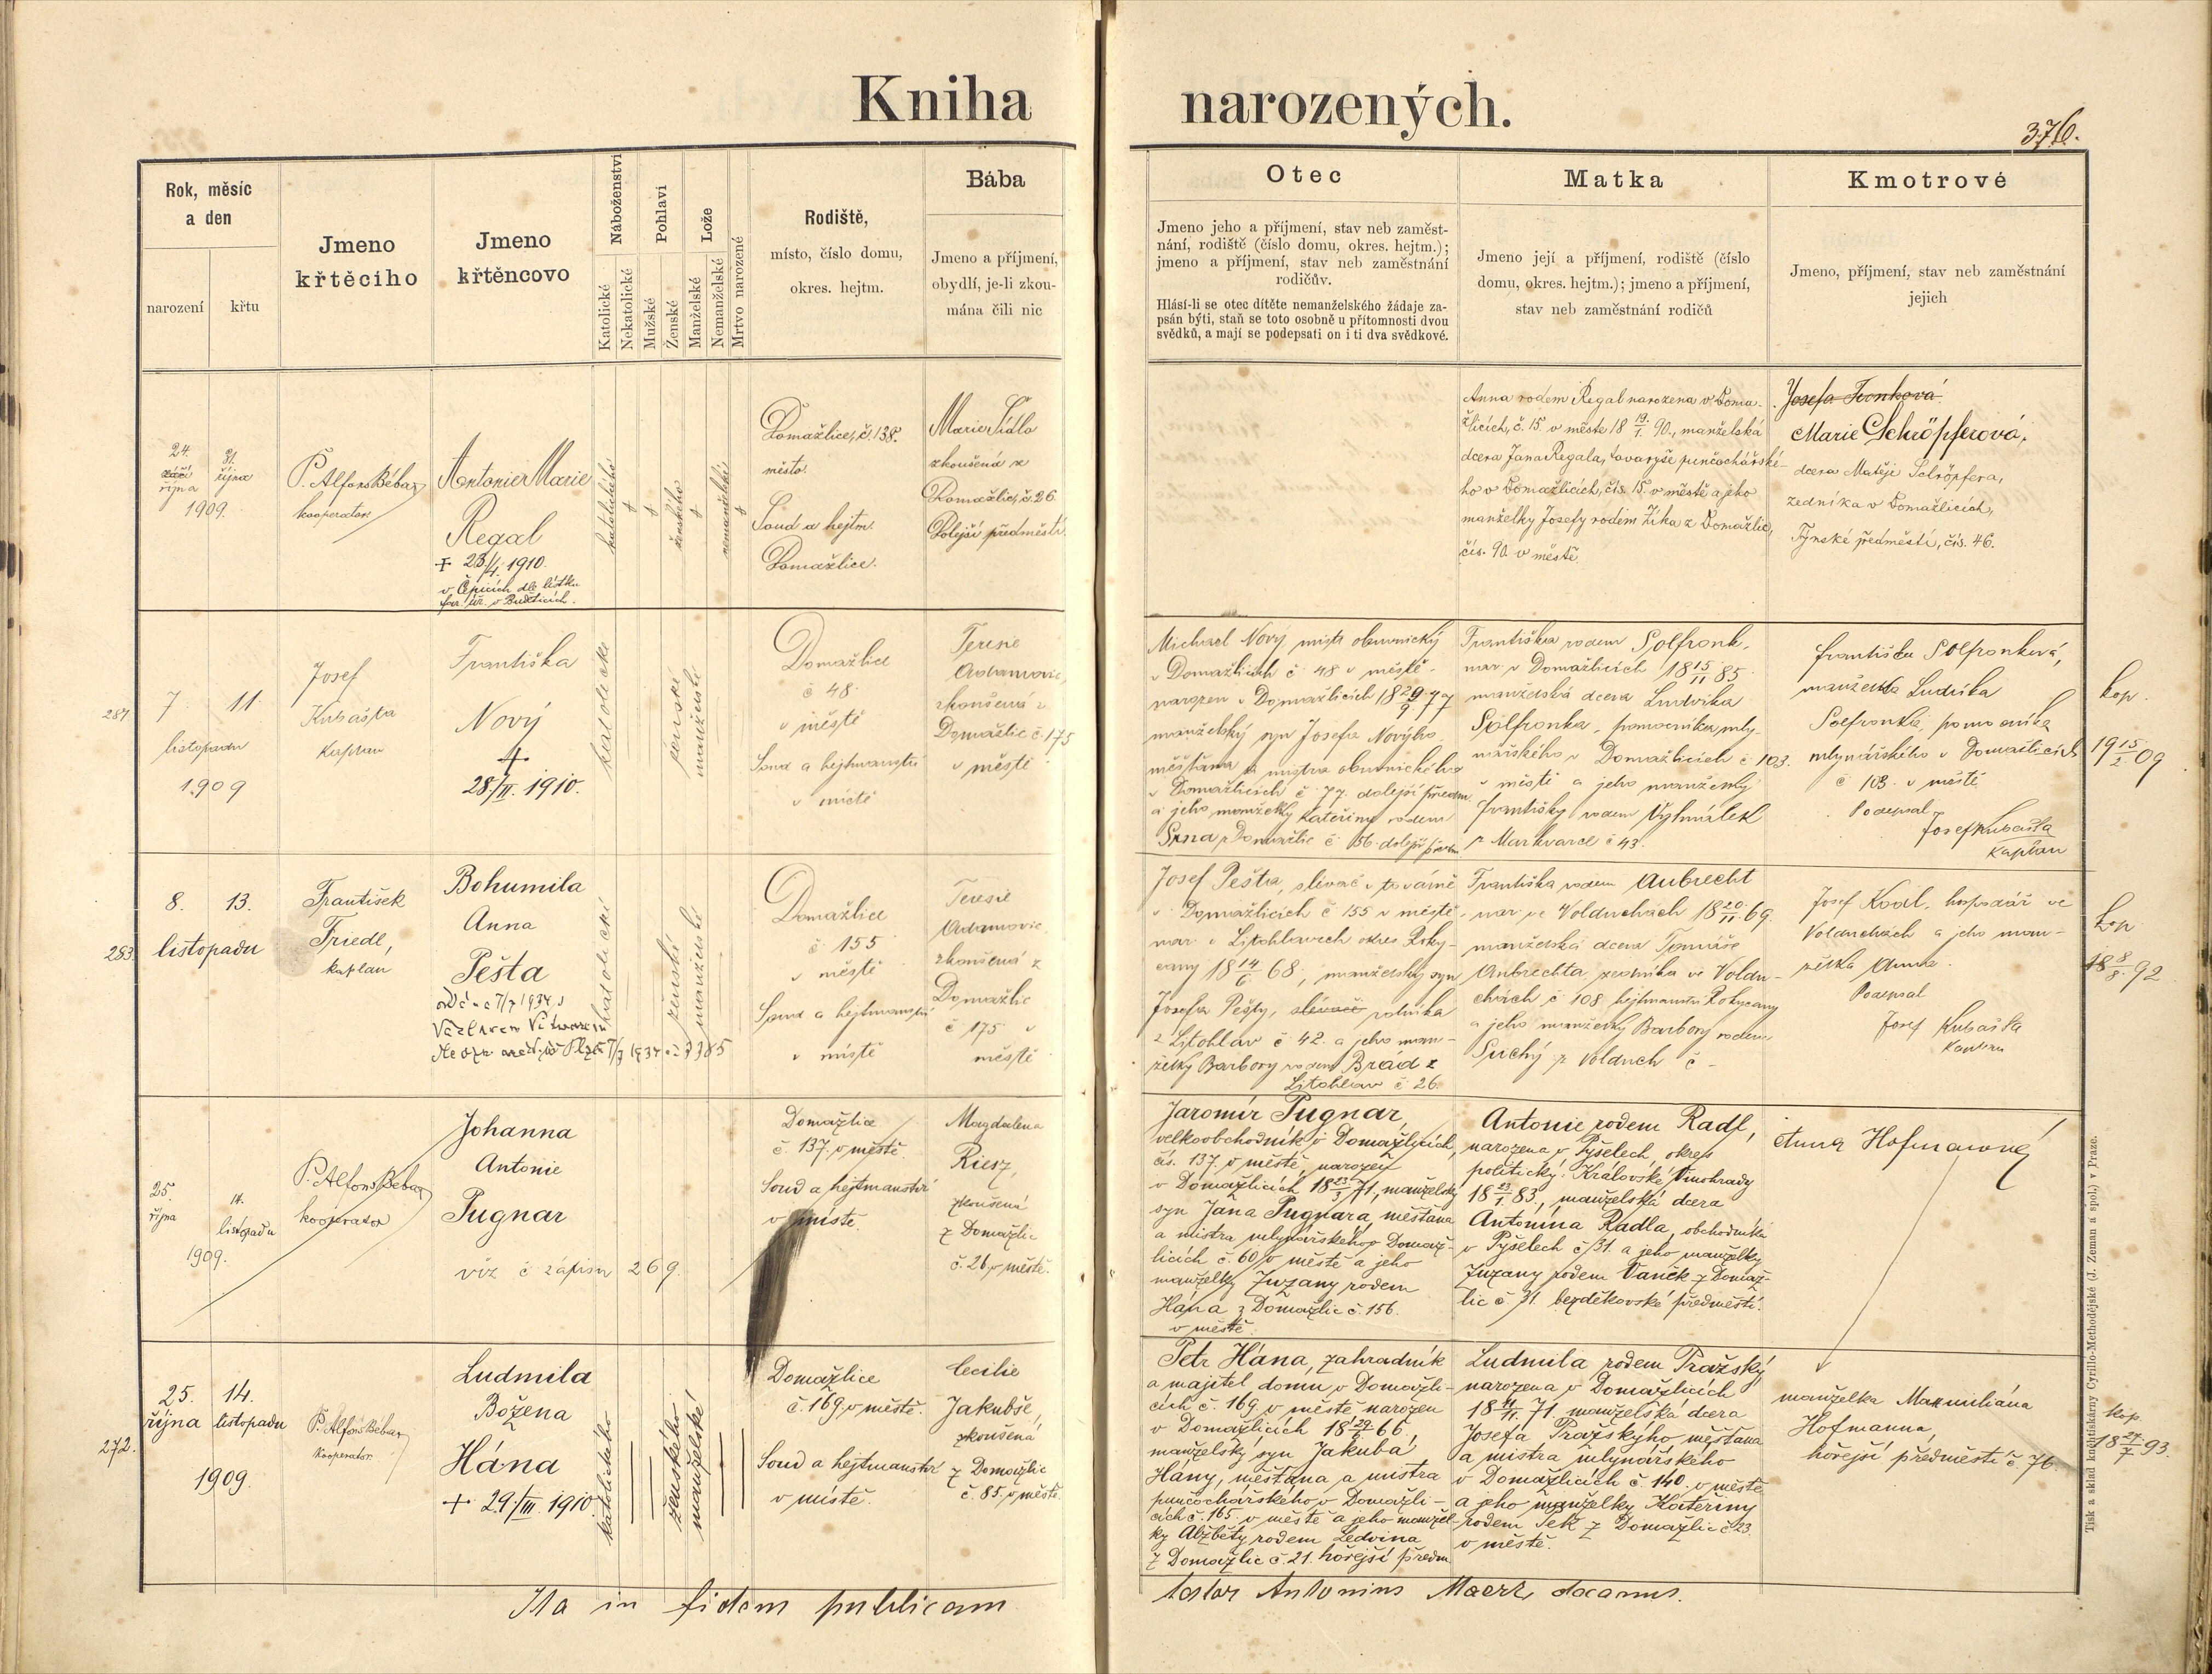 Kniha narozených.
376.
Rok, měsíc
a den
narození
křtu
Jmeno
křtěcího
Jmeno
křtěncovo
Náboženství
Katolické
Nekatolické
Pohlaví
Mužské
Ženské
Lože
Manželské
Nemanželské
Mrtvo narozené
Rodiště,
místo, číslo domu,
okres. hejtm.
Bába
Jmeno a příjmení,
obydlí, je-li zkou-
mána čili nic
Otec
Jmeno jeho a příjmení, stav neb zaměst-
nání, rodiště (číslo domu, okres. hejtm.);
jmeno a příjmení, stav neb zaměstnání
rodičův.
Hlásí-li se otec dítěte nemanželského žádaje za-
psán býti, staň se toto osobně u přítomnosti dvou
svědků, a mají se podepsati on i ti dva svědkové.
Matka
Jmeno její a příjmení, rodiště (číslo
domu, okres. hejtm.); jmeno a příjmení,
stav neb zaměstnání rodičů
Kmotrové
Jmeno, příjmení, stav neb zaměstnání
jejich
24.
září
října
31.
října
1909.
P. Alfons Bébar
kooperator
Antonie Marie
Regal
+ 23/4. 1910.
v Čepicích dle lístku
far. úř. v Buděticích.
katolického
ženského
nemanželské
Domažlice, č. 138.
město.
Soud a hejtm.
Domažlice.
Marie Sídlo
zkoušená z
Domažlic, č. 26
Dolejší předměstí.
Anna rodem Regal narozena v Doma-
žlicích, č. 15. v městě 18 19/1. 90., manželská
dcera Jana Regala, tovaryše punčochářské-
ho v Domažlicích, čís. 15. v městě a jeho
manželky Josefy rodem Žika z Domažlic,
čís. 90. v městě
Marie Schröpferová,
dcera Matěje Schröpfera,
zedníka v Domažlicích,
Týnské předměstí, čís. 46.
281
7. 11.
listopadu
1909
Josef
Kubašta
Kaplan
Františka
Nový
+
28./II. 1910.
katolické
ženské
manželské
Domažlice
č 48
v městě
Soud a hejtmanství
v místě
Teresie
Adamovic,
zkoušená z
Domažlic č. 175
v městě
Michael Nový, mistr obuvnický
v Domažlicích č 48 v městě.
narozen v Domažlicích 18 29/9 77
manželský syn Josefa Nového
měšťana a mistra obuvnického
v Domažlicích č 77. dolejší předm.
a jeho manželky Kateřiny rodem
Srna z Domažlic č 156. dolejší předm.
Františka rodem Solfronk,
nar. v Domažlicích 18 15/11 85
manželská dcera Ludvíka
Solfronka, pomocníka mly-
nářského v Domažlicích č 103.
v městě a jeho manželky
Františky rodem Vyhnálek
z Markvarce č 43.
Františka Solfronková,
manželka Ludvíka
Solfronka, pomocníka
mlynářského v Domažlicích
č 103 v městě
Podepsal
Josef Kubašta
Kaplan
kop.
19 15/2 09
283
8. 13.
listopadu
František
Friedl,
kaplan
Bohumila
Anna
Pešta
katolické
ženské
manželské
Domažlice
č 155
v městě
Soud a hejtmanství
v místě
Teresie
Adamovic
zkoušená z
Domažlic
č 175 v
městě
Josef Pešta, slévač v továrně
v Domažlicích č 155 v městě,
nar. v Litohlavech okres Roky-
cany 18 14/6 68, manželský syn
Josefa Pešty, slévače rolníka
z Litohlav č 42. a jeho man-
želky Barbory rodem Brád z
Litohlav č 26.
Františka rodem Aubrecht
nar. ve Volduchách 18 20/11 69.
manželská dcera Tomáše
Aubrechta, zedníka ve Voldu-
chách č 108 hejtmanství Rokycany
a jeho manželky Barbory rodem
Suchý z Volduch č -
Josef Kodl, hospodář ve
Volduchách a jeho man-
želka Anna.
Podepsal
Josef Kubašta
Kaplan
kop.
18 8/8. 92
25.
října
14.
listopadu
1909.
P. Alfons Bébar
kooperator
Johanna
Antonie
Pugnar
viz č zápisu 269.
Domažlice
č. 137. v městě.
Soud a hejtmanství
v místě.
Magdalena
Riesz,
zkoušená
z Domažlic
č. 26 v městě.
Jaromír Pugnar,
velkoobchodník v Domažlicích,
čís. 137. v městě, narozen
v Domažlicích 18 23/3 71, manželský
syn Jana Pugnara, měšťana
a mistra mlynářského v Domaž-
licích č. 60, v městě a jeho
manželky Zuzany rodem
Hána z Domažlic č. 156.
v městě.
Antonie rodem Radl,
narozena v Pyšelech, okres
politický: Královské Vinohrady
18 23/1. 83., manželská dcera
Antonína Radla, obchodníka
v Pyšelech č. 31. a jeho manželky
Zuzany rodem Vaněk z Domaž-
lic č. 31. bezděkovské předměstí.
Anna Hofmanová
272.
25. 14.
října listopadu
1909.
P. Alfons Bébar
kooperator.
Ludmila
Božena
Hána
+ 29./III. 1910.
katolického
ženského
manželské
Domažlice
č. 169, v městě.
Soud a hejtmanství
v místě.
Cecilie
Jakubše,
zkoušená
z Domažlic
č. 85. v městě.
Petr Hána, zahradník
a majitel domu v Domažli-
cích č. 169. v městě narozen
v Domažlicích 18 29/6. 66.
manželský syn Jakuba
Hány, měšťana a mistra
punčochářského v Domažli-
cích č. 165. v městě a jeho manžel-
ky Alžběty rodem Ledvina
z Domažlic č. 21. hořejší předm.
Ludmila rodem Pražský
narozena v Domažlicích
18 11/11. 71. manželská dcera
Josefa Pražského měšťana
a mistra mlynářského
v Domažlicích č. 140. v městě
a jeho manželky Kateřiny
rodem Jek z Domažlic č 23.
v městě.
manželka Maxmiliána
Hofmanna,
hořejší předměstí č 76
kop.
18 27/7. 93.
Ita in fidem publicam
testor Antonins Maerz decanus.
Tisk a sklad knihtiskárny Cyrillo-Methodějské (J. Zeman a spol.) v Praze.